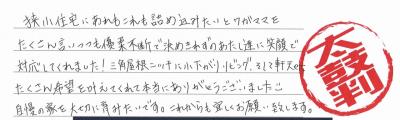 狭小住宅にあれもこれも詰め込みたいとワガママを
たくさん言いつつも優柔不断で決めきれずのあたし達に笑顔で
対応してくれました！三角屋根ニッチに小上がりリビング、そして軒天etc
たくさん希望を叶えてくれて本当にありがとうございました
自慢の家を大切に育みたいです。これからも宜しくお願い致します。
太鼓判